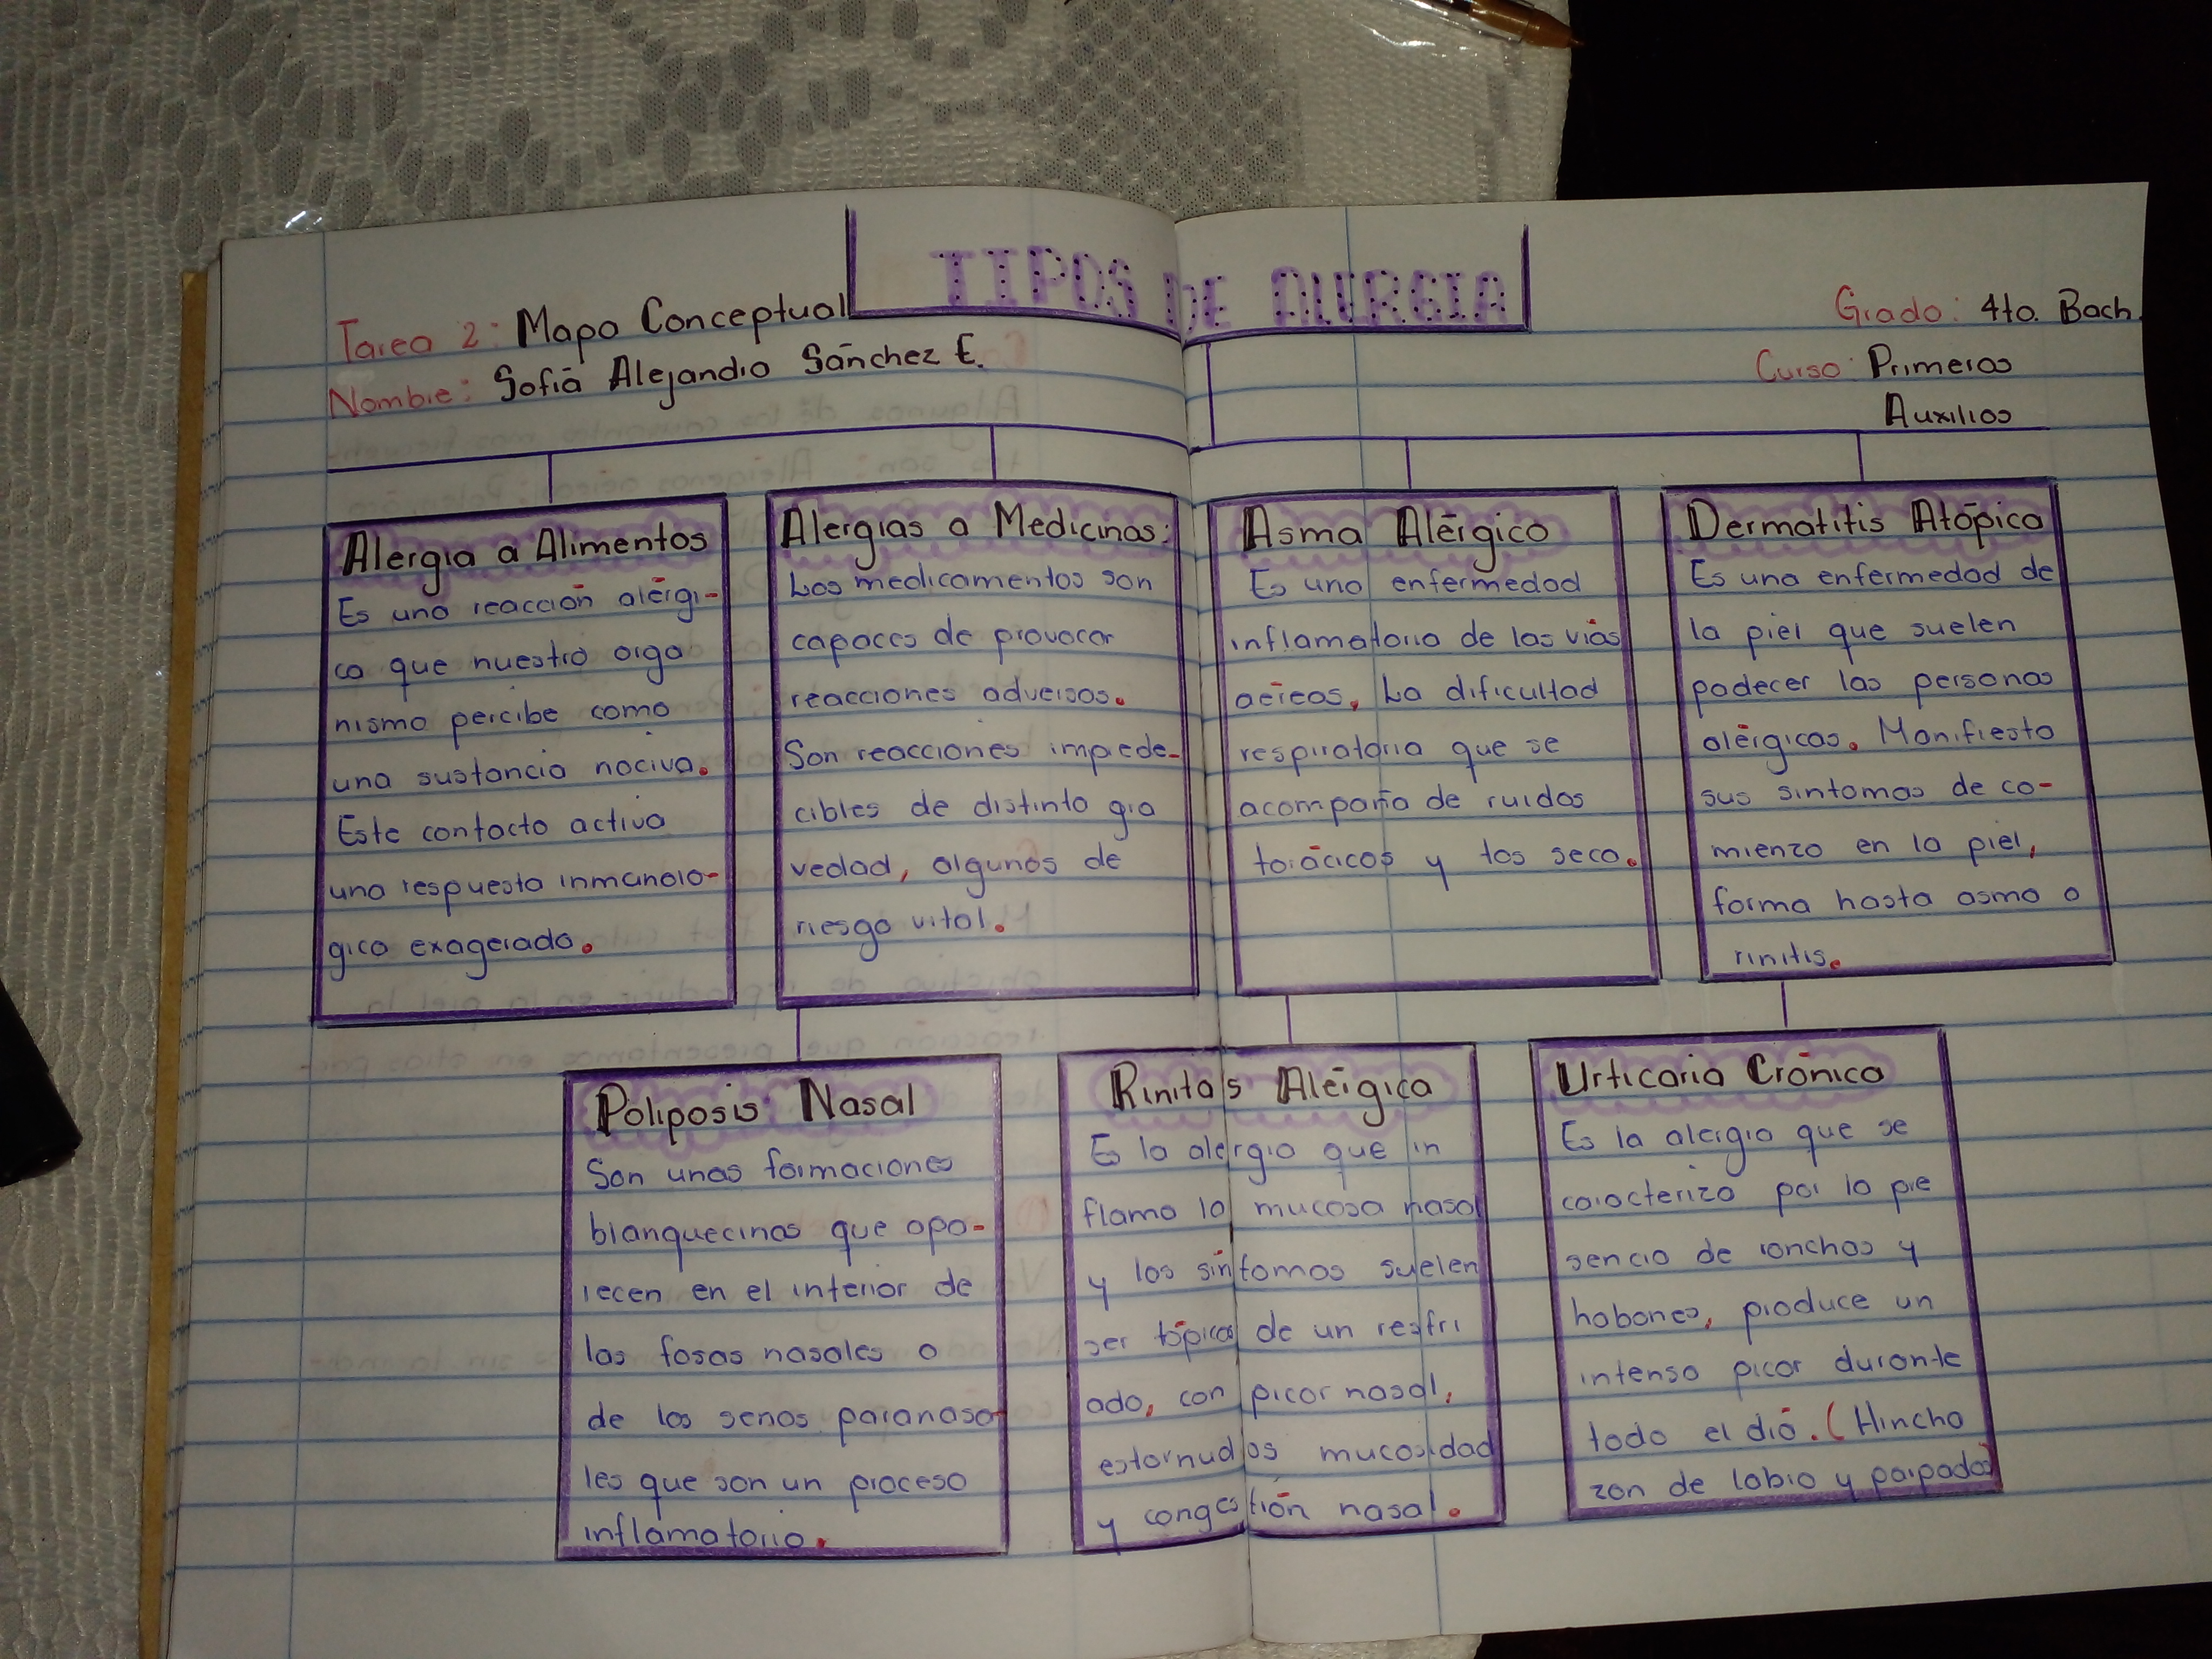 TIPOS DE ALERGIA
Tarea 2: Mapa Conceptual
Nombre: Sofiá Alejandra Sánchez E.
Grado: 4to. Bach.
Curso: Primeros
Auxilios
Alergia a Alimentos
Es una reacción alérgi-
ca que nuestro orga
nismo percibe como
una sustancia nociva.
Este contacto activa
una respuesta inmunolo-
gica exagerada.
Alergias a Medicinas:
Los medicamentos son
capaces de provocar
reacciones adversas.
Son reacciones impede-
cibles de distinta gra
vedad, algunas de
riesgo vital.
Asma Alérgico
Es una enfermedad
inflamatoria de las viás
aéreas, La dificultad
respiratoria que se
acompaña de ruidos
torácicos y tos seca.
Dermatitis Atópica
Es una enfermedad de
la piel que suelen
padecer las personas
alérgicas. Manifiesta
sus sintomas de co-
mienzo en la piel,
forma hasta asma o
rinitis.
Poliposis Nasal
Son unas formaciones
blanquecinas que apa-
recen en el interior de
las fosas nasales o
de los senos paranasa
les que son un proceso
inflamatorio.
Rinitas Alérgica
Es la alergia que in
flama la mucosa nasal
y los sintomas suelen
ser tópicas de un resfri
ado, con picor nasal,
estornudos mucosidad
y congestión nasal.
Urticaria Crónica
Es la alergia que se
caracteriza por la pre
sencia de ronchas y
habones, produce un
intenso picor durante
todo el diá. (Hincha
zon de labio y parpados)